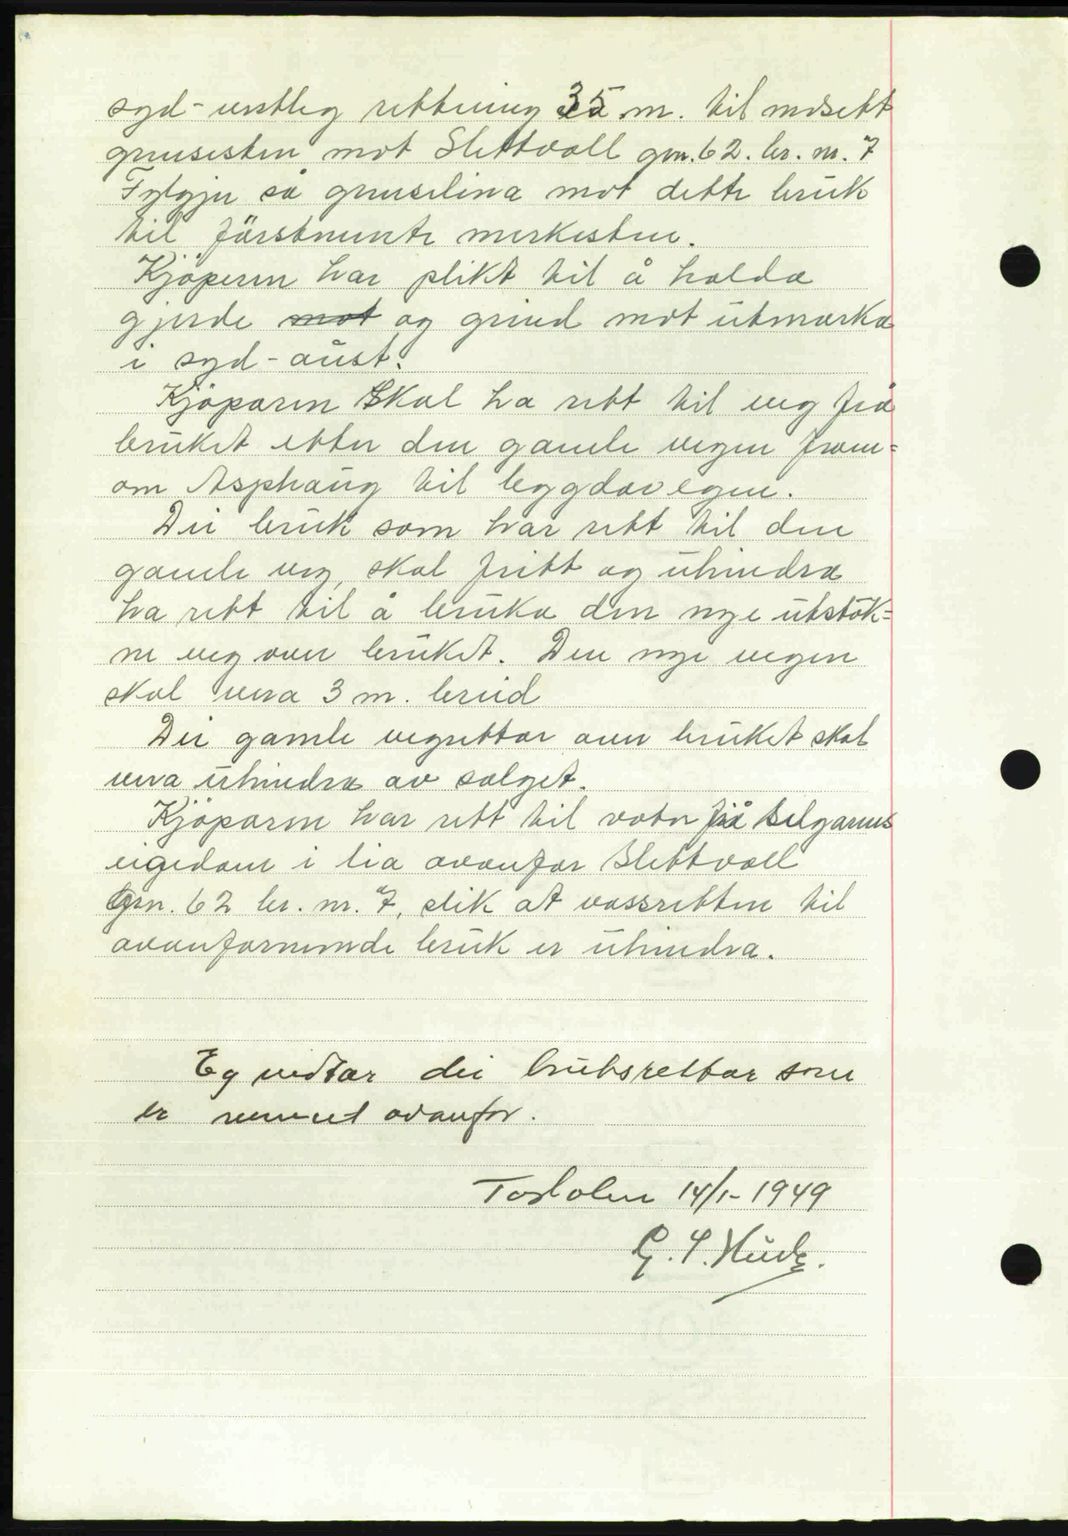 syd-vestleg rettning 35 m. til nedsett
grensestein mot Slettvoll gnr. 62. br. nr. 7
Fylgjer så grenselina mot dette bruk
til fürstnemnte merkestein.
Kjöperen har plikt til å halda
gjerde mot og grind mot utmarka
i syd-aust.
Kjöparen skal ha rett til veg frå
bruket etter den gamle vegen fram=
om Asphaug til bygdavegen.
Dei bruk som har rett til den
gamle veg, skal fritt og uhindra
ha rett til å bruka den nye utstök=
ne veg over bruket. Den nye vegen
skal vera 3 m. breid
Dei gamle vegrettar over bruket skal
vera uhindra av salget.
Kjöparen har rett til vatn frå seljarens
eigedom i lia ovanfor Slettvoll
Gnr. 62 br. nr. 7, slik at vassretten til
ovanfornemnde bruk er uhindra.
Eg vedtar dei bruksrettar som
er nemnt ovanfor.
14/1- 1949